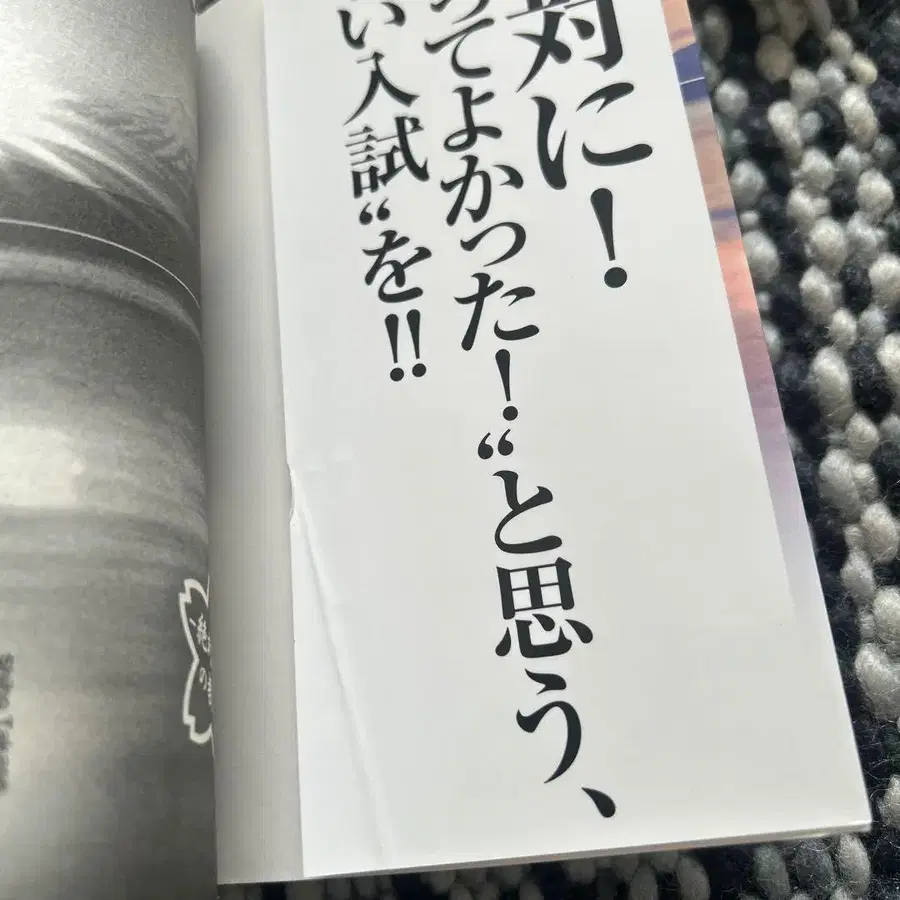 対に！
ってよかった！“と思う、
い入試“を!!
の